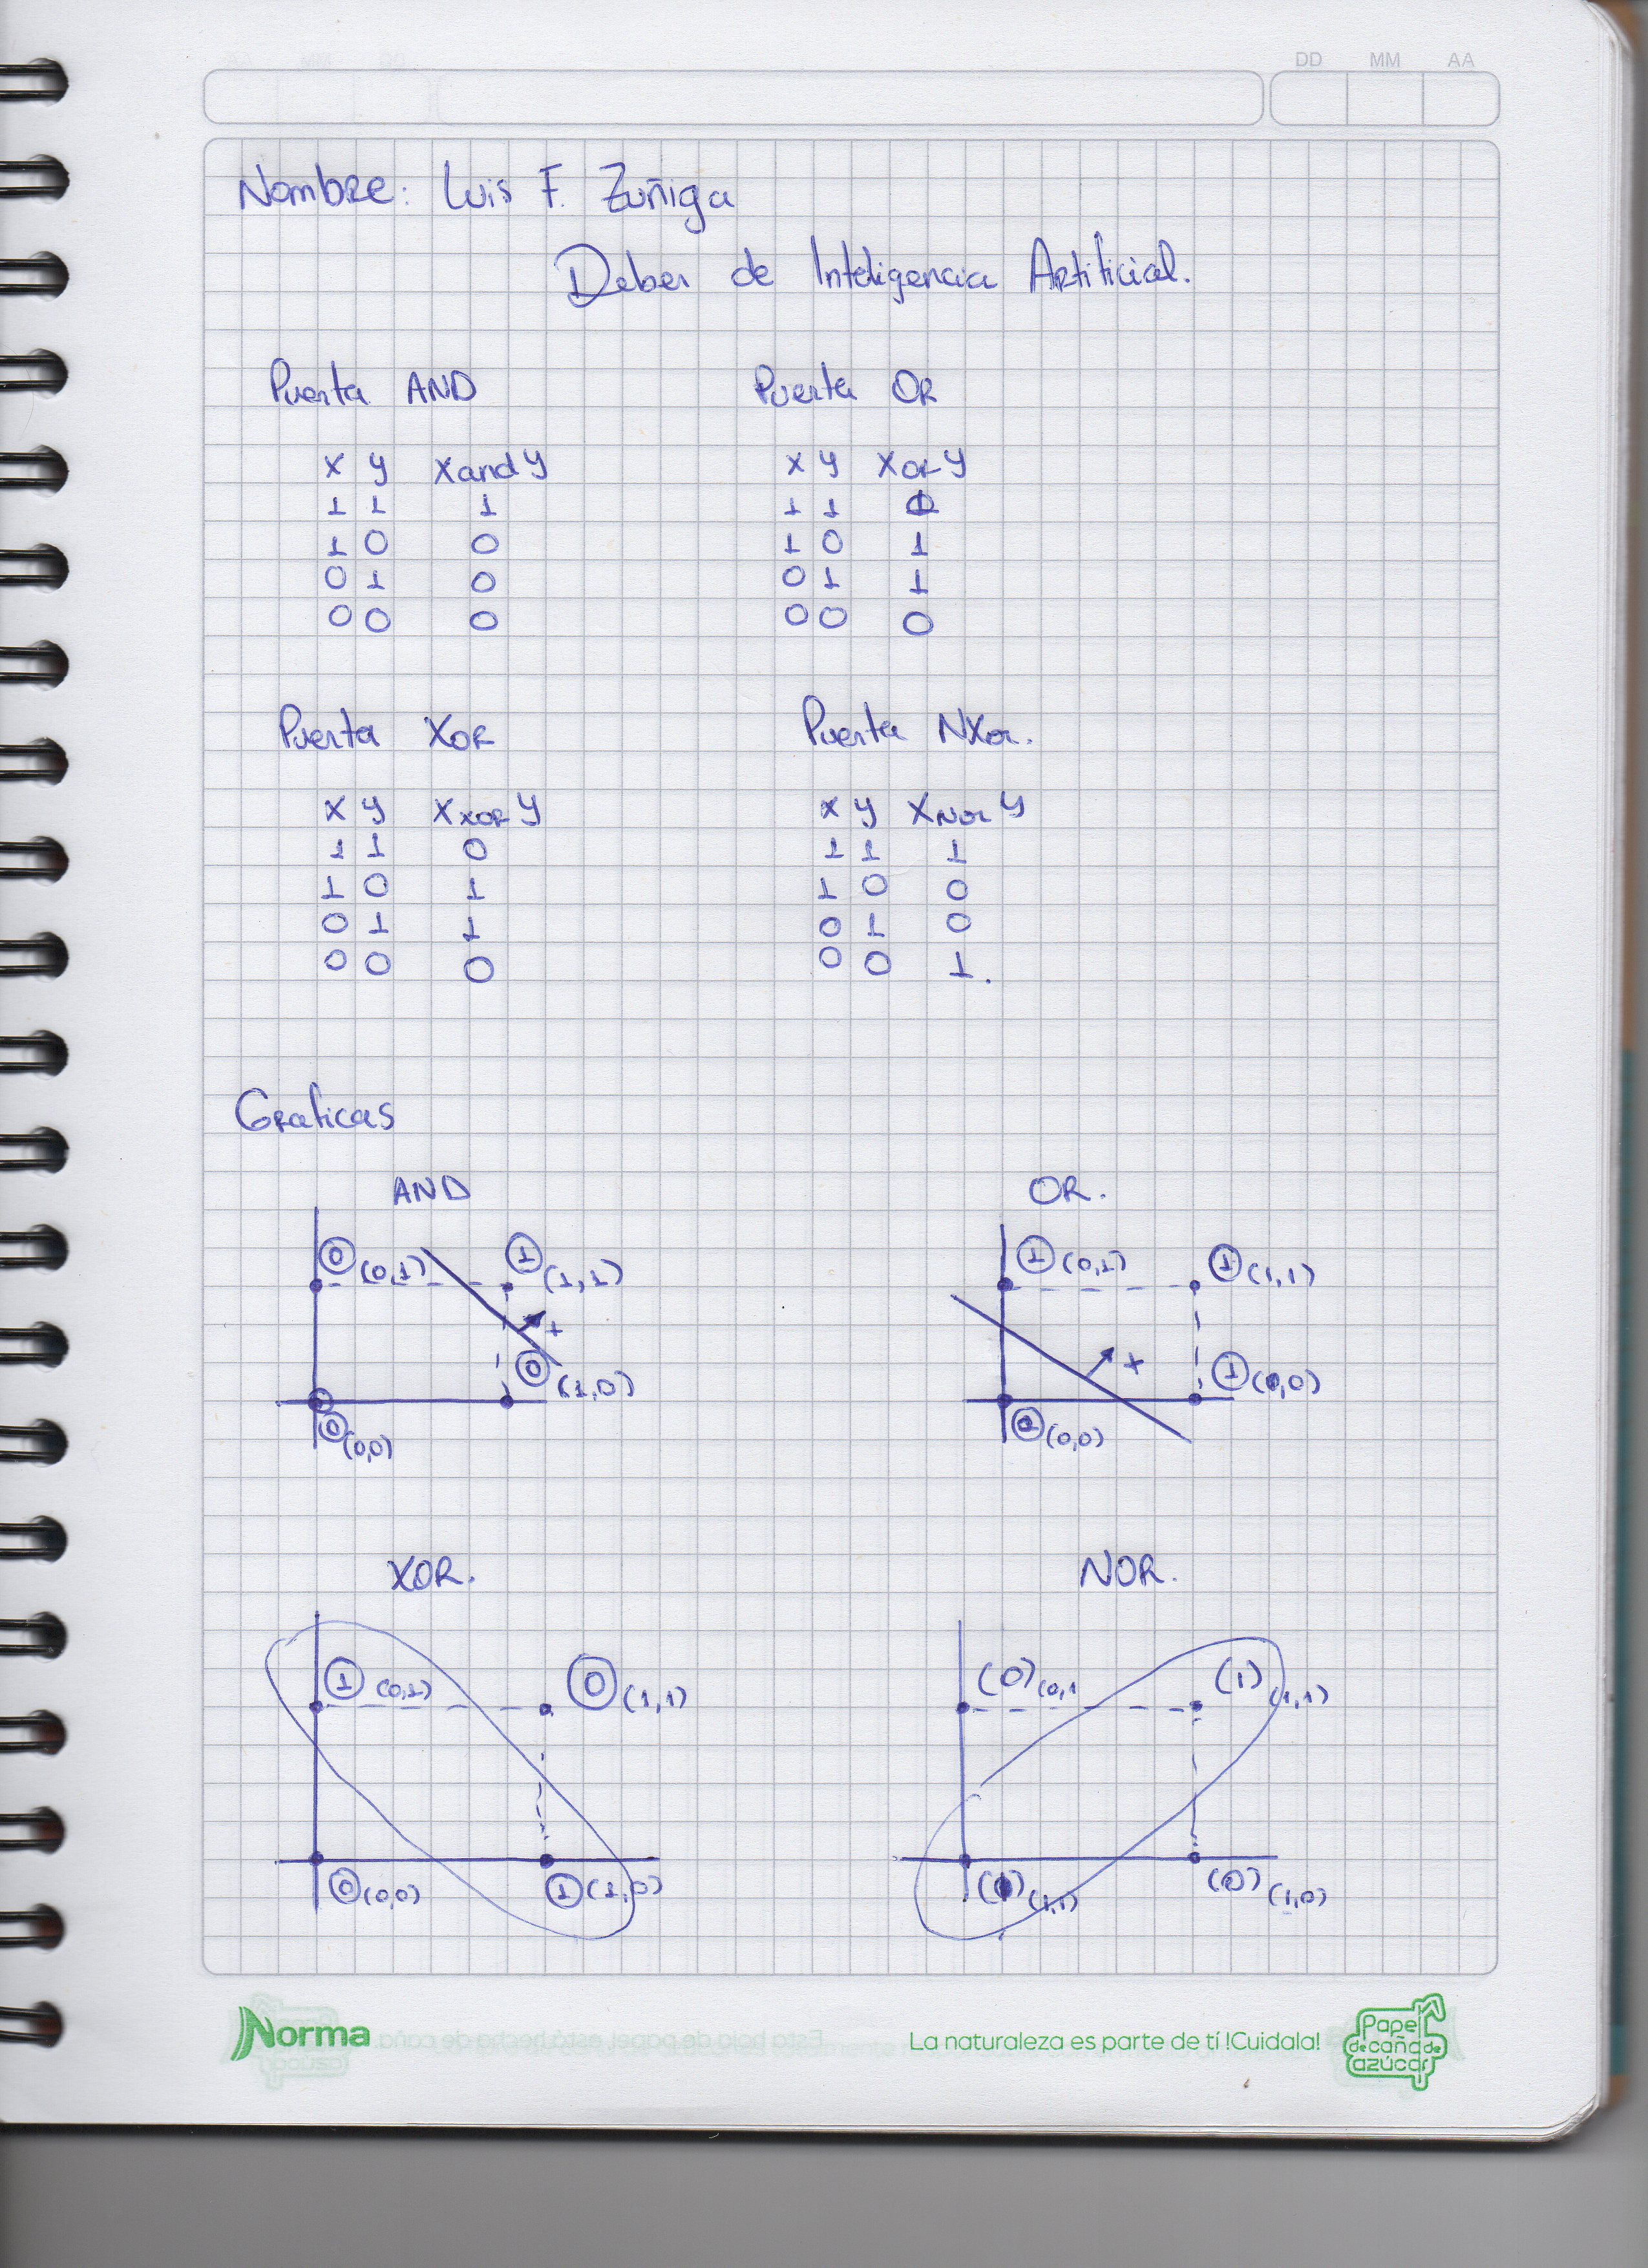 DD MM AA
Nombre: Luis F. Zuñiga
Deber de Inteligencia Artificial.
Puerta AND
x y xandy
1 1 1
1 0 0
0 1 0
0 0 0
Puerta OR
x y xory
1 1 1
1 0 1
0 1 1
0 0 0
Puerta XOR
x y xxory
1 1 0
1 0 1
0 1 1
0 0 0
Puerta NXor.
x y xNory
1 1 1
1 0 0
0 1 0
0 0 1.
Graficas
AND
0 (0,1) 1 (1,1)
+
0 (1,0)
0 (0,0)
OR.
1 (0,1) 1 (1,1)
+
1 (0,0)
(0,0)
XOR.
1 (0,1) 0 (1,1)
0 (0,0) 1 (1,0)
NOR.
(0) (0,1 (1) (1,1)
(1,1) (0) (1,0)
Norma
La naturaleza es parte de tí !Cuidala!
Papel
de caña de
azúcar